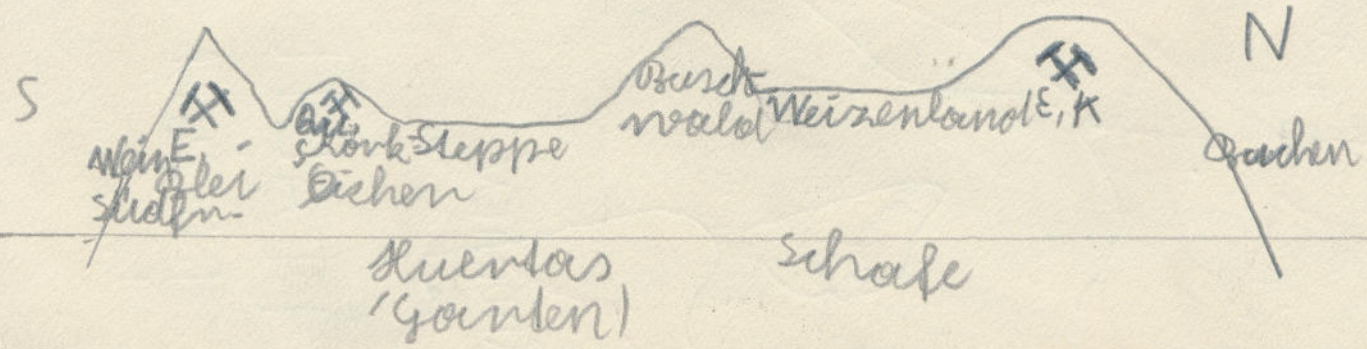 S
N
Wein E,
Blei
Südfr.
Kork-
Eichen
Steppe
Busch-
wald
Weizenland
E, K
Buchen
Huertas
(Gärten)
Schafe